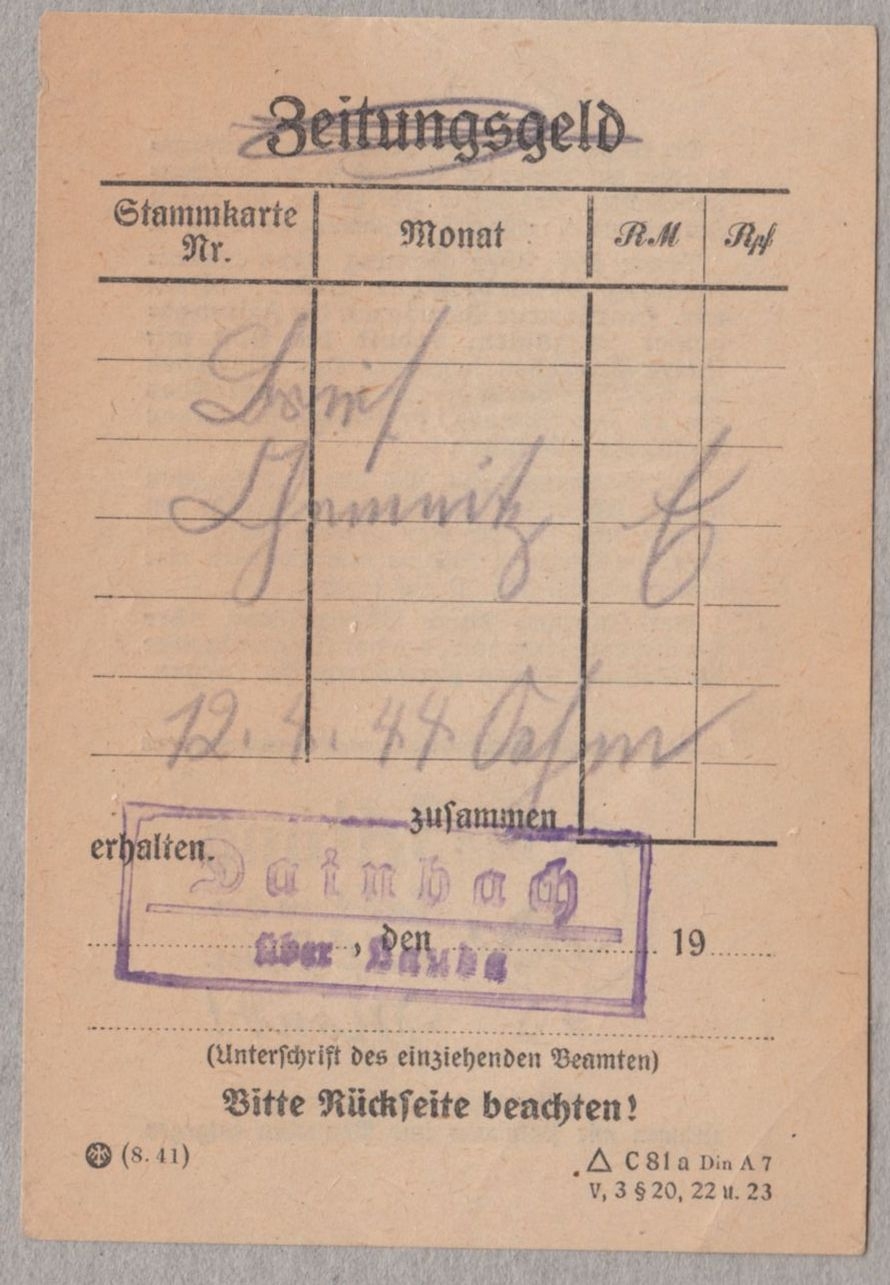 Zeitungsgeld
Stammkarte Nr. Monat RM Rpf
Brief
Chemnitz
12. 4. 44
zusammen
erhalten.
Dainbach
über Lauda
, den 19
(Unterschrift des einziehenden Beamten)
Bitte Rückseite beachten!
(8. 41)
△ C 81 a Din A 7
V, 3 § 20, 22 u. 23